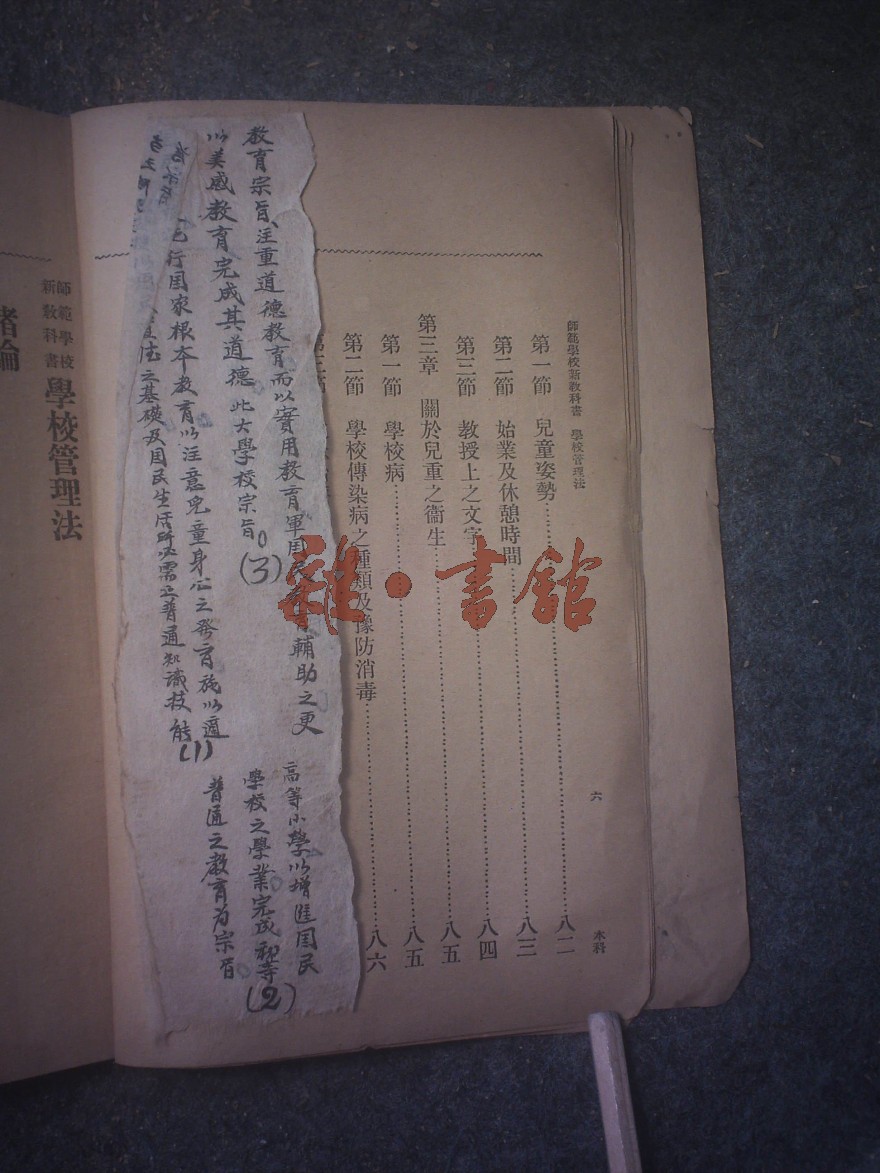 師範學校新教科書 學校管理法
六
本科
第一節 兒童姿勢……八二
第二節 始業及休憩時間……八三
第三節 教授上之文字……八四
第三章 關於兒重之衞生……八五
第一節 學校病……八五
第二節 學校傳染病之種類及豫防消毒……八六
教育宗旨、注重道德教育而以實用教育軍国民教育輔助之更
以美感教育完成其道德 此大學校宗旨。(3)
行国家根本教育以注意兒童身心之發育施以適
之基礎及国民生活所必需之普通知識技能(1)
高等小學以增進国民
學校之學業完成初等
普通之教育为宗旨(2)
師範學校
新教科書
學校管理法
緒論
雜·書館